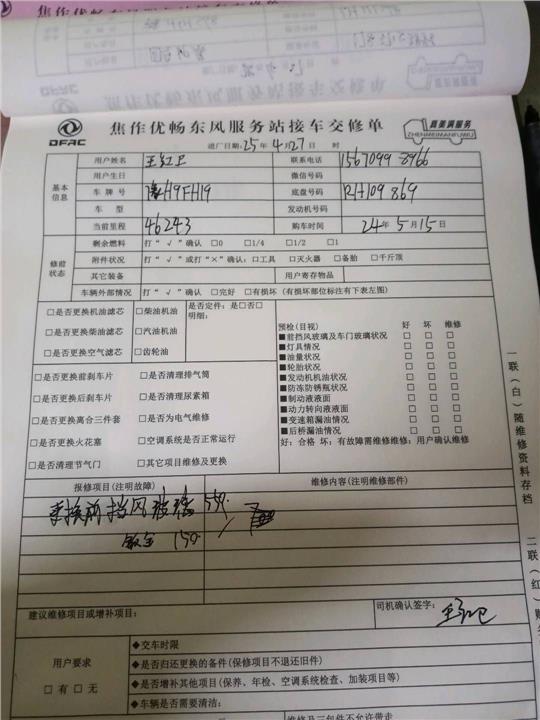 焦作优畅东风服务站接车交修单
DFAC
焦作优畅东风服务站接车交修单
真美满服务
ZHENMEIMANFUWU
进厂日期:25年4月27日 时
基本信息
用户姓名 王红卫 联系电话 15670998966
用户生日 微信号码
车牌号 豫H9FH19 底盘号码 RH109869
车型 发动机号码
当前里程 46243 购车时间 24年5月15日
修前状态
剩余燃料 打“√”确认 □0 □1/4 □1/2 □1
附件状况 打“√”或打“×”确认:□工具 □灭火器 □备胎 □千斤顶
其它装备 用户寄存物品
车辆外部情况 打“√”确认 □完好 □有损坏(有损坏部位标注有下表左图)
□是否更换机油滤芯 □柴油机油 是否定件:是□否□
明细:
□是否更换柴油滤芯 □汽油机油
□是否更换空气滤芯 □齿轮油
□是否更换前刹车片 □是否清理排气筒
□是否更换后刹车片 □是否清理尿素箱
□是否更换离合三件套 □是否为电气维修
□是否更换火花塞 □空调系统是否正常运行
□是否清理节气门 □其它项目维修及更换
预检(目视) 好 坏 维修
■前挡风玻璃及车门玻璃状况 □ □ □
■灯具情况 □ □ □
■油量状况 □ □ □
■轮胎状况 □ □ □
■发动机机油状况 □ □ □
■防冻防锈瓶状况 □ □ □
■制动液液面 □ □ □
■动力转向液液面 □ □ □
■变速箱漏油情况 □ □ □
■后桥漏油情况 □ □ □
好:合格 坏:有故障需维修维修:用户确认维修
报修项目(注明故障) 维修内容(注明维修部件)
更换前挡风玻璃 550
钣金 150
建议维修项目或增补项目:
司机确认签字: 王红卫
用户要求
□有 □无
◆交车时限
◆是否归还更换的备件(保修项目不退还旧件)
◆是否增补其他项目(保养、年检、空调系统检查、加装项目等)
◆车辆是否需要清洁:
维修及三包件不允许带走
一联(白)随维修资料存档
二联(红)